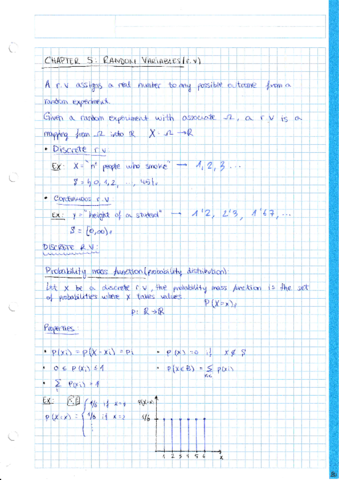 CHAPTER 5: RANDOM VARIABLES (r.v)
A r.v assigns a real number to any possible outcome from a
random experiment.
Given a random experiment with associate Ω, a r.v is a
mapping from Ω into ℝ X: Ω → ℝ
• Discrete r.v
Ex: X = "nº people who smoke" → 1, 2, 3 ...
S = {0, 1, 2, ..., 45}
• Continuous r.v
Ex: Y = "height of a student" → 1'2, 1'3, 1'67, ...
S = [0,∞)
DISCRETE R.V:
Probability mass function (probability distribution)
Let X be a discrete r.v, the probability mass function is the set
of probabilities where X takes values
P(X=x)
p: ℝ → ℝ
Properties
• P(xi) = P(X=xi) = Pi • P(x) = 0 if x ∉ S
• 0 ≤ P(xi) ≤ 1 • P(X∈B) = Σ P(xi)
• Σ P(xi) = 1
Ex: 1/6 if x=1 P(X=x)
P(X=x) = 1/6 if x=2 1/6
1 2 3 4 5 6 x